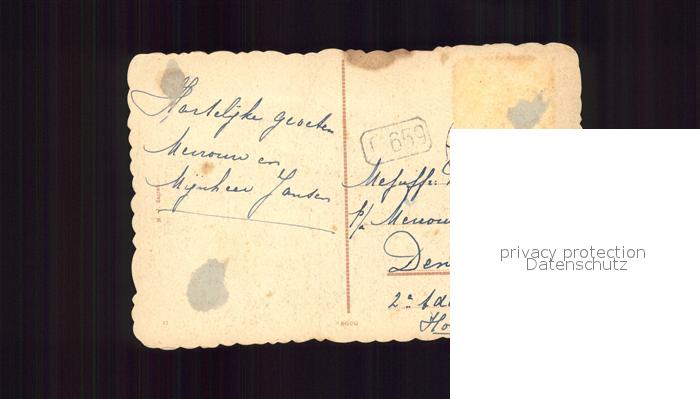 Hartelijke groeten
Mevrouw en
Mijnheer Jansen
659
Mejuffr:
p/a Mevrouw
Den
2e
privacy protection
Datenschutz